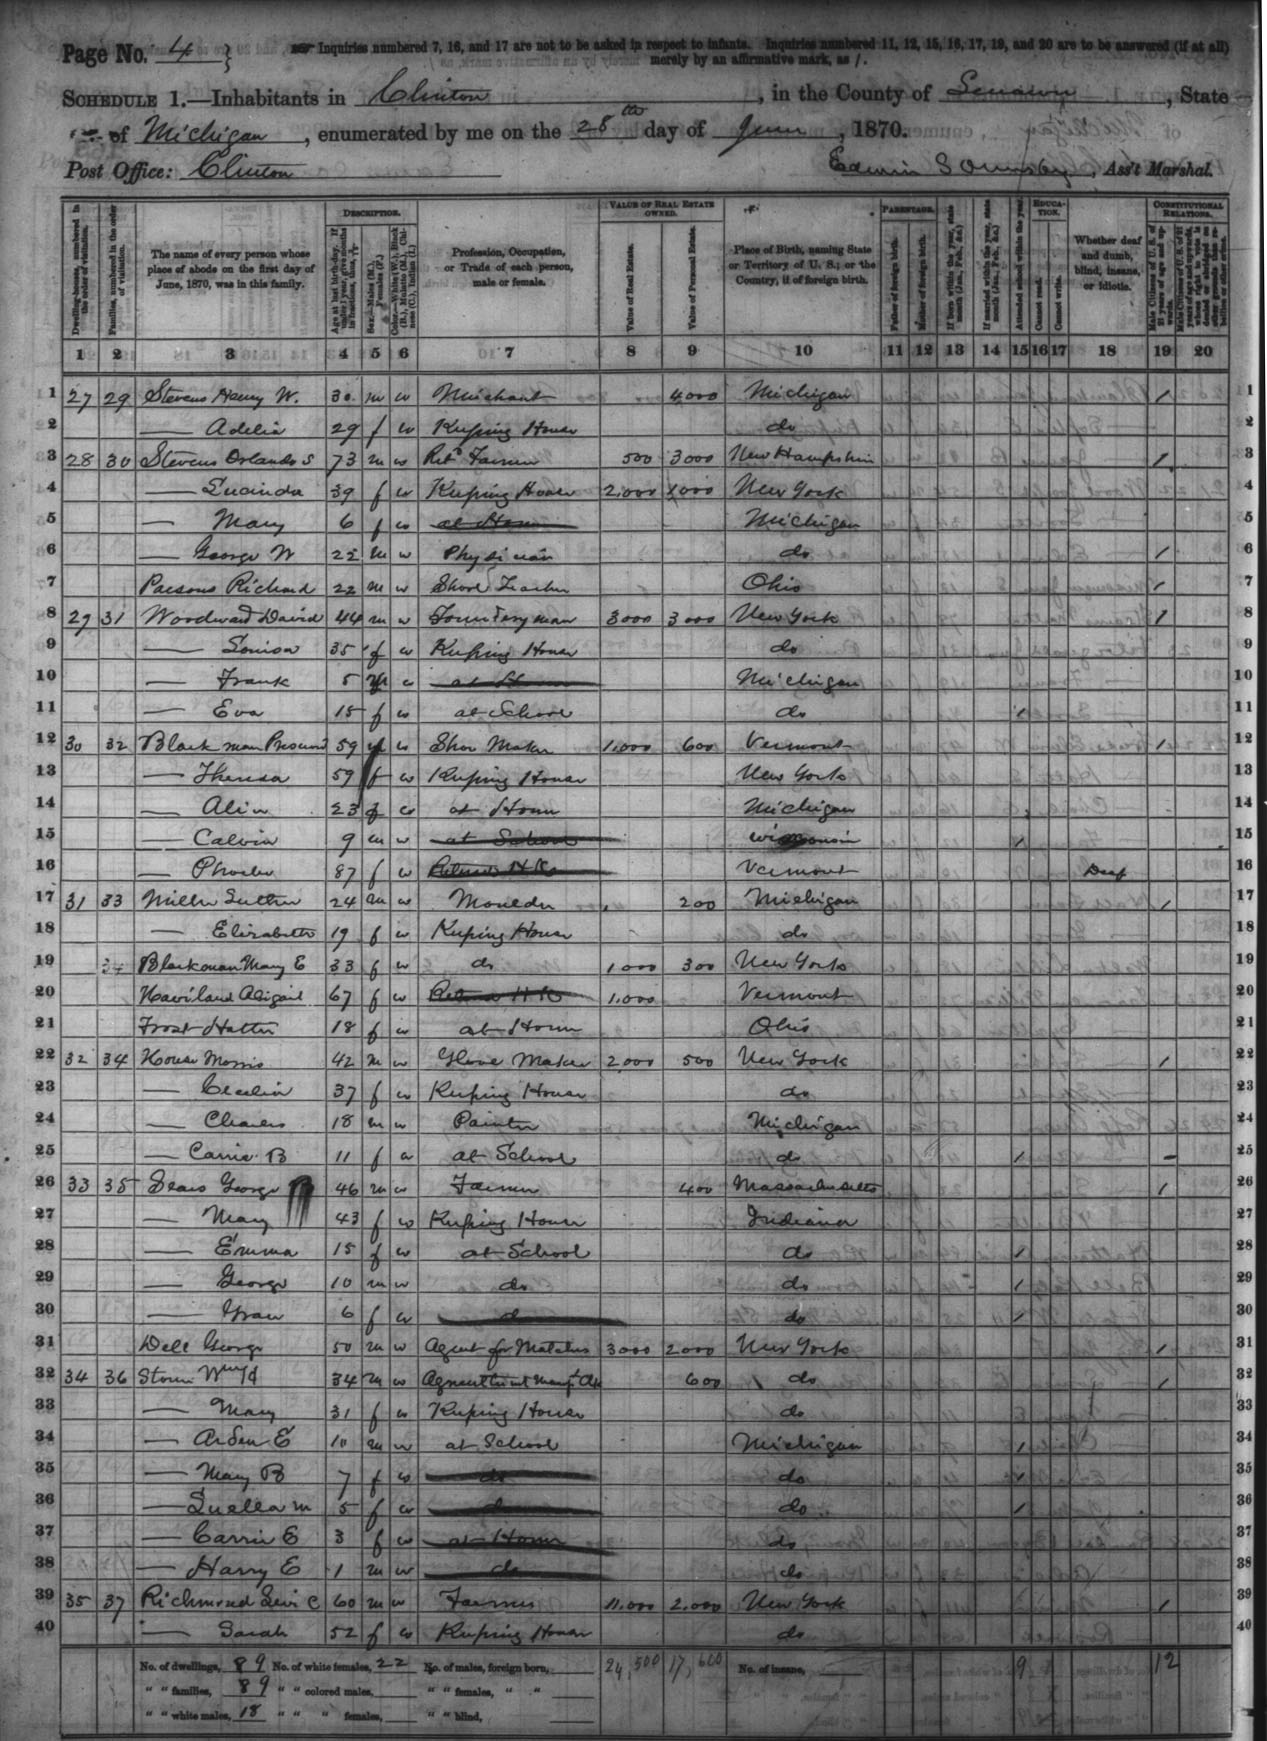 Page No. 4 } Inquiries numbered 7, 16, and 17 are not to be asked in respect to infants. Inquiries numbered 11, 12, 15, 16, 17, 19, and 20 are to be answered (if at all)
merely by an affirmative mark, as /.
SCHEDULE 1.—Inhabitants in Clinton, in the County of Lenawee, State
of Michigan, enumerated by me on the 28th day of June, 1870.
Post Office: Clinton Edwin S Ormsby, Ass't Marshal.
DESCRIPTION. VALUE OF REAL ESTATE OWNED. PARENTAGE. EDUCATION. CONSTITUTIONAL RELATIONS.
Dwelling-houses, numbered in the order of visitation. Families, numbered in the order of visitation. The name of every person whose place of abode on the first day of June, 1870, was in this family. Profession, Occupation, or Trade of each person, male or female. Value of Real Estate. Value of Personal Estate. Place of Birth, naming State or Territory of U. S.; or the Country, if of foreign birth. Father of foreign birth. Mother of foreign birth. Attended school within the year. Cannot read. Cannot write. Whether deaf and dumb, blind, insane, or idiotic.
1 2 3 4 5 6 7 8 9 10 11 12 13 14 15 16 17 18 19 20
1 27 29 Stevens Henry W. 30 m w Merchant 4000 Michigan / 1
2 — Adelia 29 f w Keeping House do 2
3 28 30 Stevens Orlando S 73 m w Retd Farmer 500 3000 New Hampshire / 3
4 — Lucinda 39 f w Keeping House 2,000 1,000 New York 4
5 — Mary 6 f w at Home Michigan 5
6 — George W 22 m w Physician do / 6
7 Parsons Richard 22 m w School Teacher Ohio / 7
8 29 31 Woodward David 44 m w Foundryman 3000 3000 New York / 8
9 — Louisa 35 f w Keeping House do 9
10 — Frank 5 m w at Home Michigan 10
11 — Eva 15 f w at School do / 11
12 30 32 Blackman 59 m w Shoe Maker 1,000 600 Vermont / 12
13 — Theresa 59 f w Keeping House New York 13
14 — Alice 23 f w at Home Michigan 14
15 — Calvin 9 m w at School Wisconsin / 15
16 — Phoebe 87 f w Retired H K Vermont Deaf 16
17 31 33 Miller Luther 24 m w Moulder 200 Michigan / 17
18 — Elizabeth 19 f w Keeping House do 18
19 34 Blackman Mary E 33 f w do 1000 300 New York 19
20 Haviland Abigail 67 f w Retired H K 1,000 Vermont 20
21 Frost Hattie 18 f w at Home Ohio 21
22 32 34 House Morris 42 m w Glove Maker 2,000 500 New York / 22
23 — Cecelia 37 f w Keeping House do 23
24 — Charles 18 m w Painter Michigan 24
25 — Carrie B 11 f w at School do / 25
26 33 35 Sears George 46 m w Farmer 400 Massachusetts / 26
27 — Mary 43 f w Keeping House Indiana 27
28 — Emma 15 f w at School do / 28
29 — George 10 m w do do / 29
30 — Grace 6 f w do do / 30
31 Dell George 50 m w Agent for Matches 3000 2000 New York / 31
32 34 36 Storm Wm H 34 m w 600 do / 32
33 — Mary 31 f w Keeping House do 33
34 — Arden E 10 m w at School Michigan / 34
35 — Mary B 7 f w do do / 35
36 — Luella M 5 f w do do / 36
37 — Carrie E 3 f w at Home do 37
38 — Harry E 1 m w do do 38
39 35 37 Richmond Levi C 60 m w Farmer 11,000 2,000 New York / 39
40 — Sarah 52 f w Keeping House do 40
No. of dwellings, 89 No. of white females, 22 No. of males, foreign born, 24,500 17,600 No. of insane, 9 12
" " families, 89 " " colored males, " " females, " "
" " white males, 18 " " " females, " " blind,